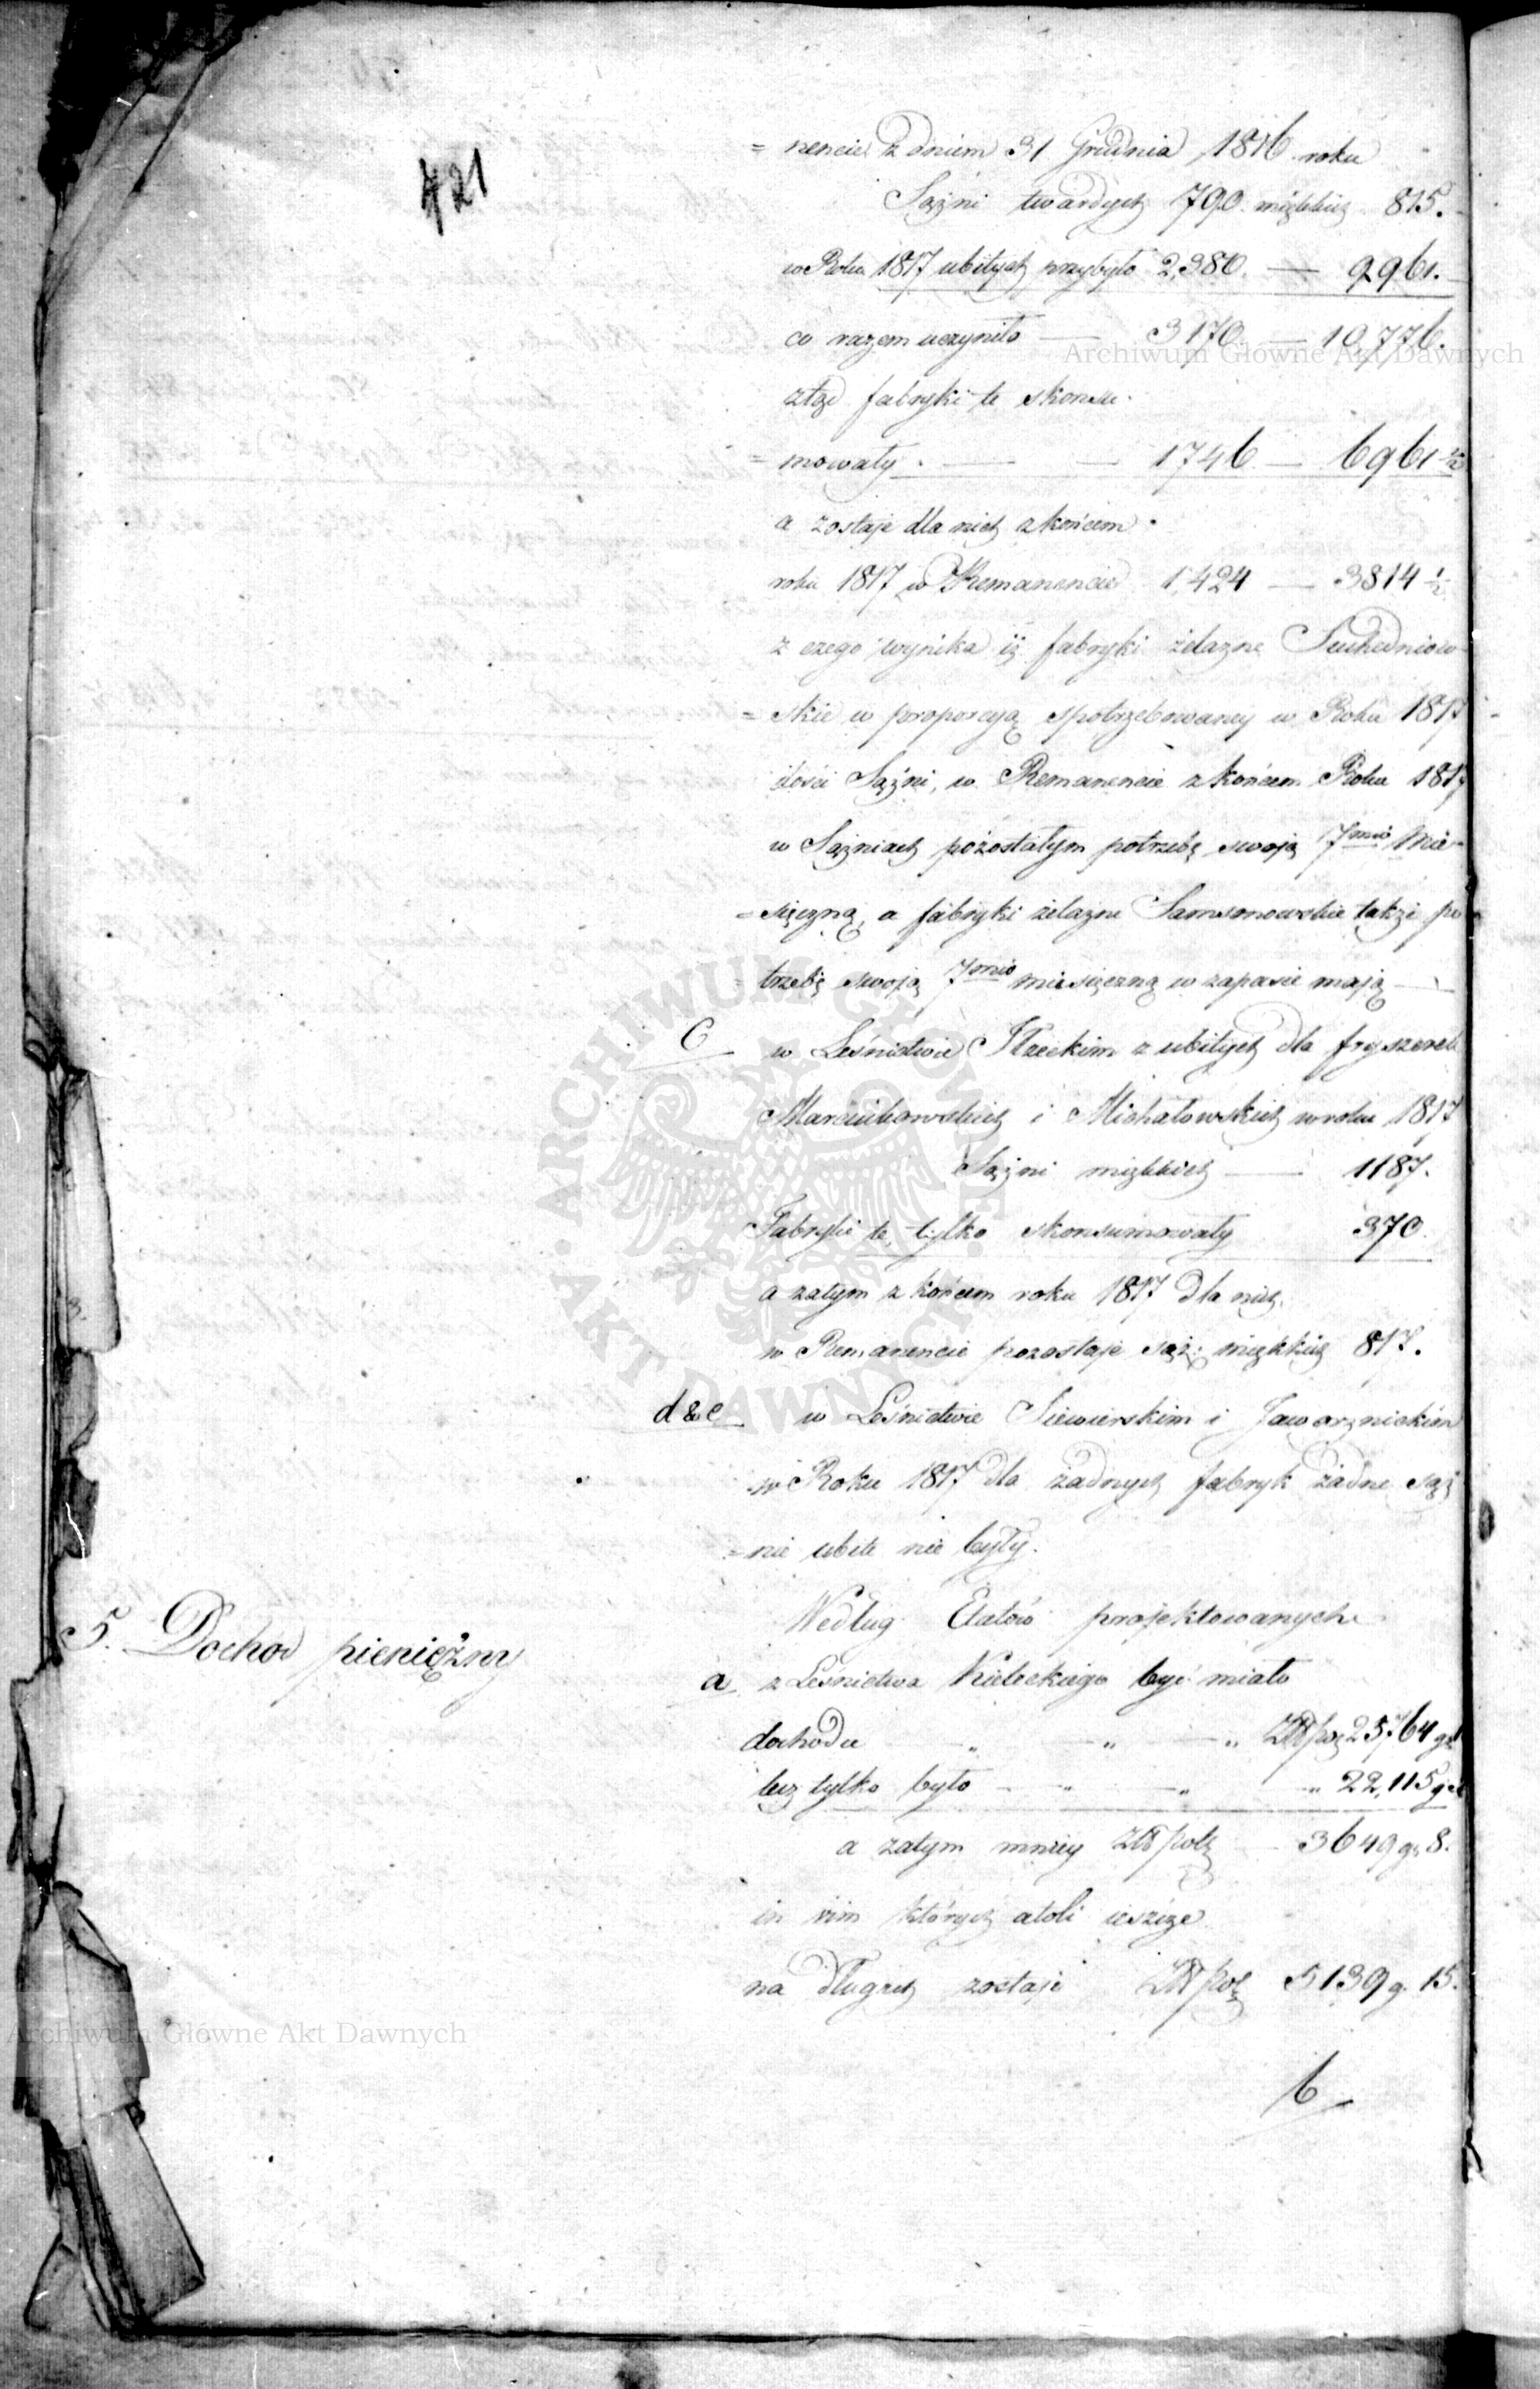 421
= nencie z dniem 31 Grudnia 1816 roku
Sążni twardych 790. miękkich 815.
w Roku 1817 ubitych przybyło 2,380. — 9961.
co razem uczyniło — 3170. — 10,776.
ztąd fabryki te skonsu-
= mowały. — — 1746 — 6961 ½
a zostaje dla nich z końcem
roku 1817 w Remanencie 1,424 — 3814 ½
z czego wynika iż fabryki żelazne Suchedniow-
= skie w proporcyą spotrzebowaney w Roku 1817
ilości Sążni, w Remanencie z końcem Roku 1817
w Sążniach pozostałym potrzebę swoją 7mio Mie-
= sięczną, a fabryki żelazne Samsonowskie także po
= trzebę swoją 7mio miesięczną w zapasie mają —
C w Leśnictwie Iłżeckim z ubitych dla fryszerek
Marcinkowskich i Michałowskich w roku 1817
Sążni miękkich — 1187.
Fabryki te, tylko skonsumowały 370.
a zatym z końcem roku 1817 dla nich
w Remanencie pozostaje sąż: miękkich 817.
d & e w Leśnictwie Siewierskim i Jaworznickim
w Roku 1817 dla żadnych fabryk żadne sąż
= nie ubite nie były.
5. Dochod pieniężny
Według Etatów projektowanych
a z Leśnictwa Kieleckiego być miało
dochodu — „ — „ — „ Złł pol 25,764 g
lecz tylko było — „ — „ „ 22,115 g
a zatym mniey Złł pols — 3649 g. 8.
in vim których atoli ieszcze
na długach zostaje Złł pol 5139 g. 15.
6
Archiwum Główne Akt Dawnych
ARCHIWUM GŁÓWNE AKT DAWNYCH
Archiwum Główne Akt Dawnych